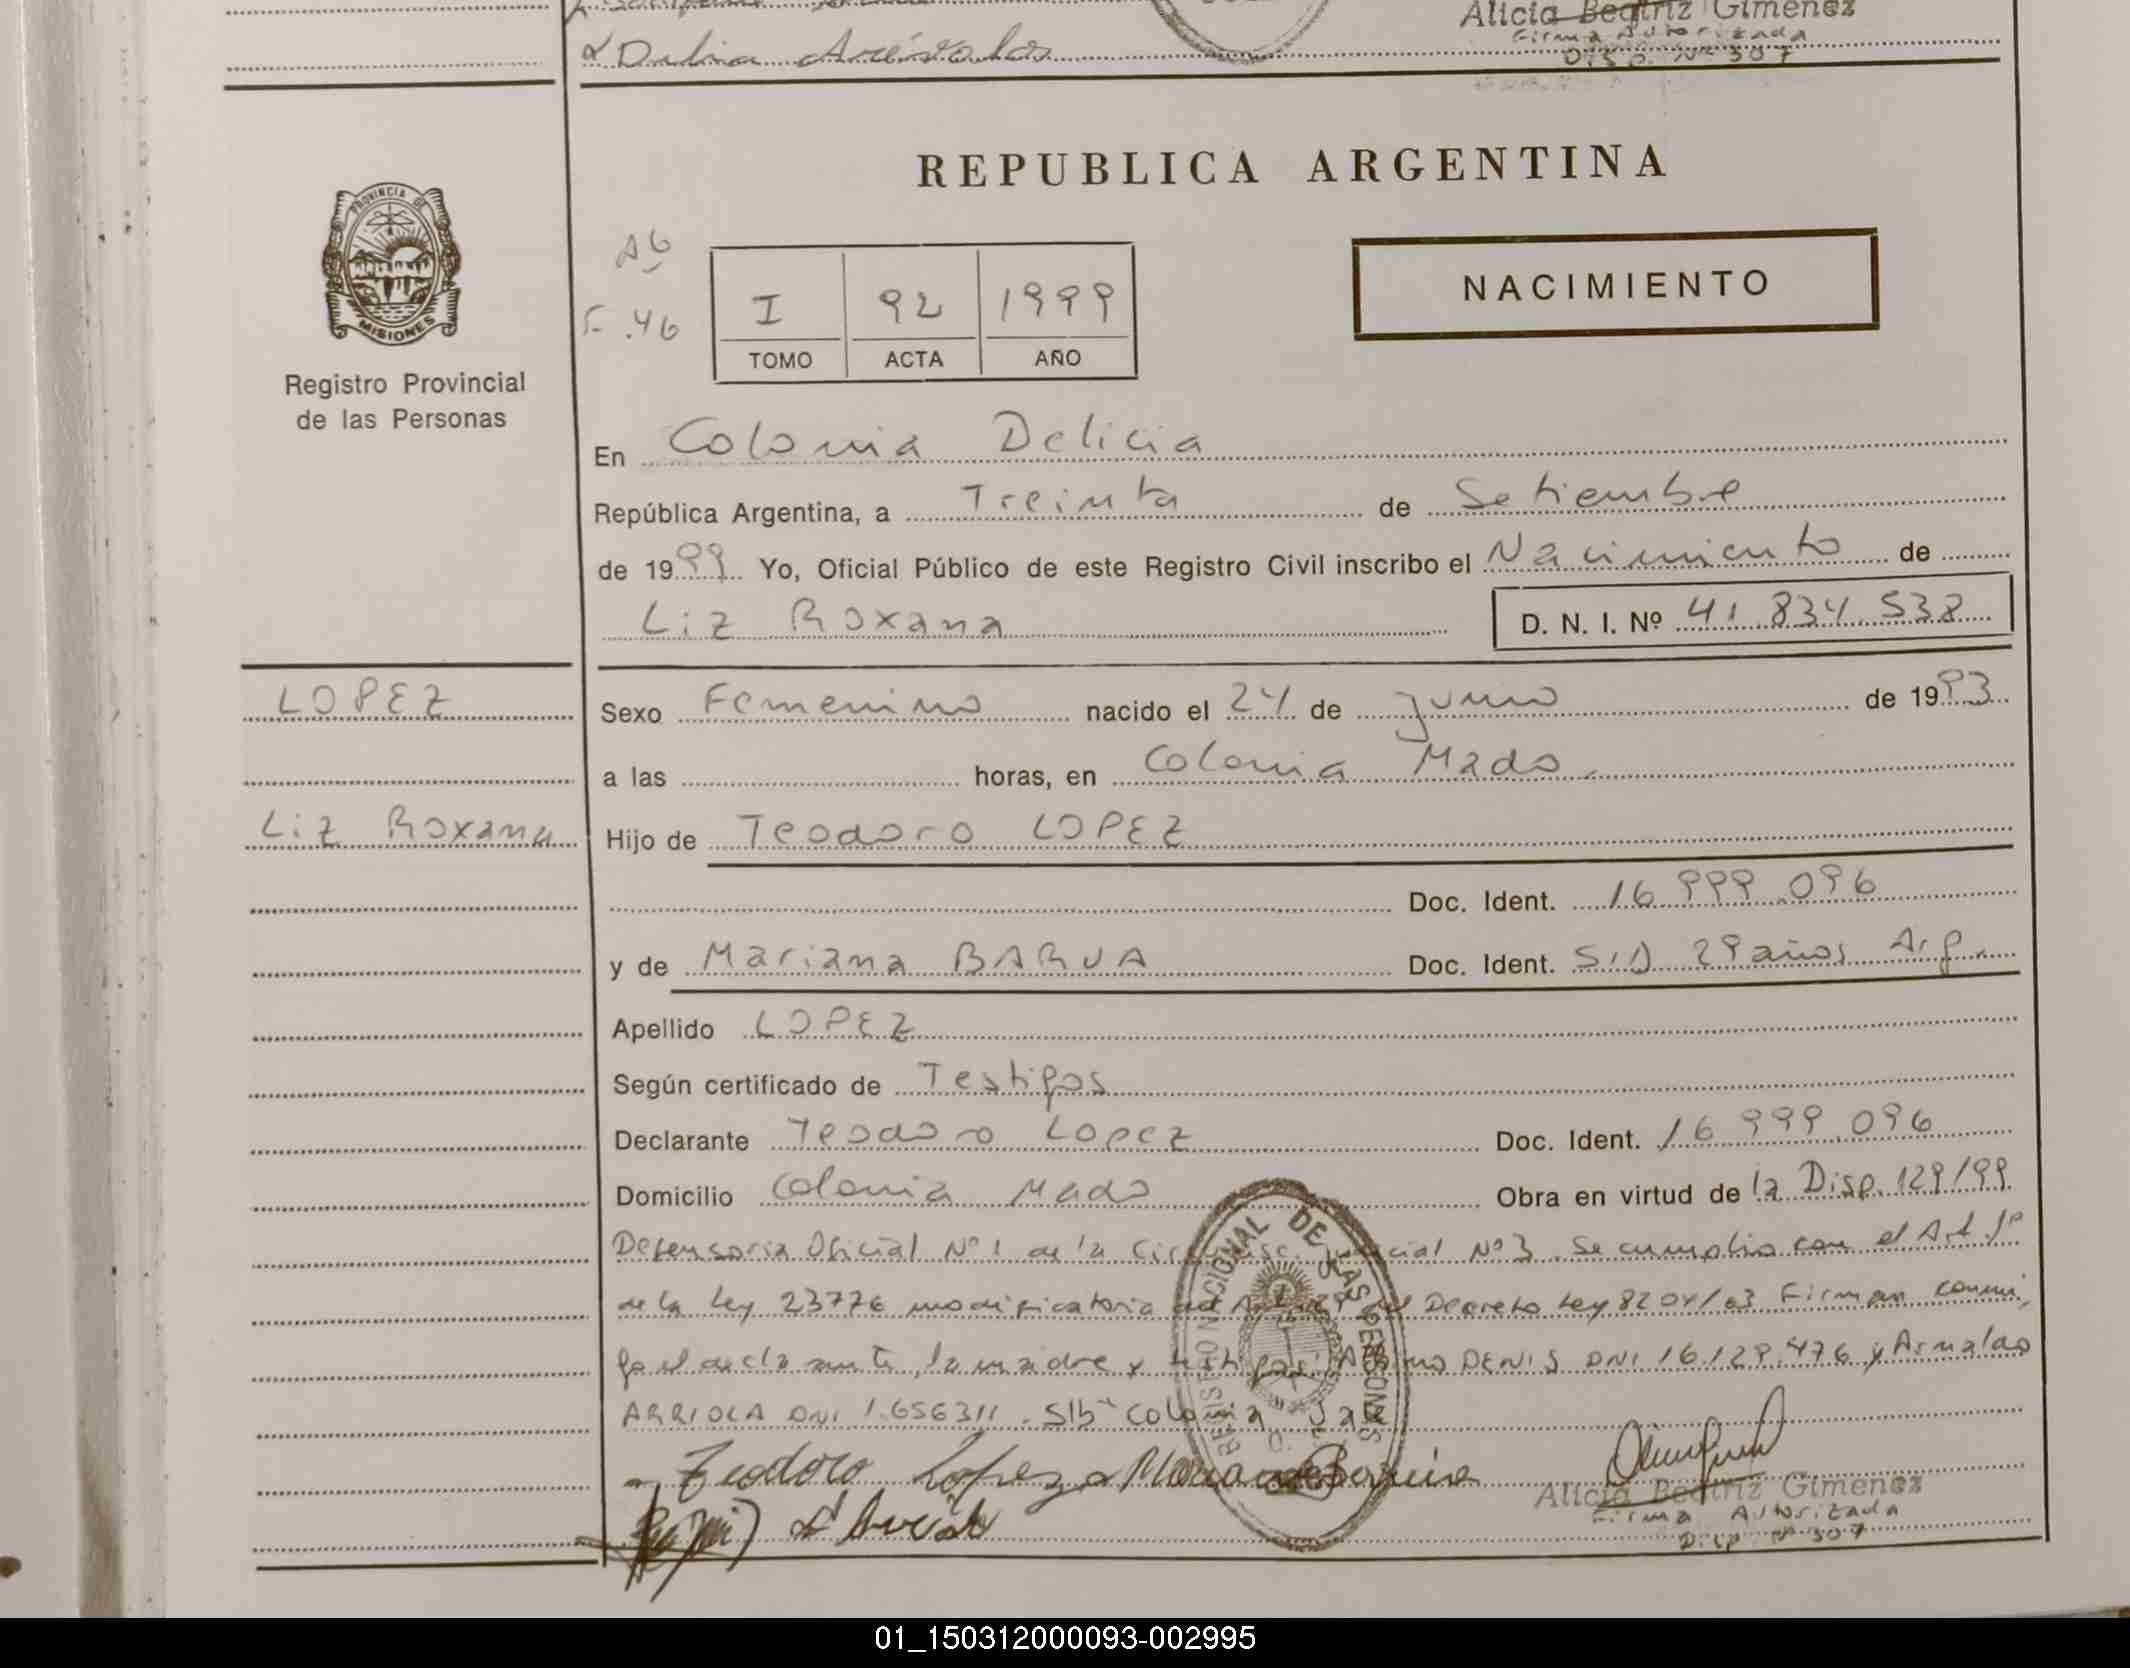 Delia Arévalos
Alicia Beatriz Gimenez
Firma Autorizada
Disp. Nº 307
REPUBLICA ARGENTINA
PROVINCIA DE
MISIONES
Registro Provincial
de las Personas
F. 46
I 92 1999
TOMO ACTA AÑO
NACIMIENTO
En Colonia Delicia
República Argentina, a Treinta de Setiembre
de 1999 Yo, Oficial Público de este Registro Civil inscribo el Nacimiento de
Liz Roxana D. N. I. Nº 41.834.538
LOPEZ
Sexo Femenino nacido el 24 de junio de 1993
a las horas, en Colonia Mado
Liz Roxana
Hijo de Teodoro LOPEZ
Doc. Ident. 16.999.096
y de Mariana BARUA Doc. Ident. S/D 29 años Arg.
Apellido LOPEZ
Según certificado de Testigos
Declarante Teodoro Lopez Doc. Ident. 16.999.096
Domicilio Colonia Mado Obra en virtud de la Disp. 129/99
Defensoria Oficial Nº 1 de la Circunsc. Judicial Nº 3. Se cumplio con el Art 1º
de la Ley 23776 modificatoria del Art. 29 del Decreto Ley 8204/63 Firman conmi
go el declarante, la madre y testigos: DENIS DNI 16.129.476 y Arnaldo
ARRIOLA DNI 1.656311. Colonia
REGISTRO NACIONAL DE LAS PERSONAS
Teodoro Lopez
Alicia Beatriz Gimenez
Firma Autorizada
Disp Nº 307
01_150312000093-002995